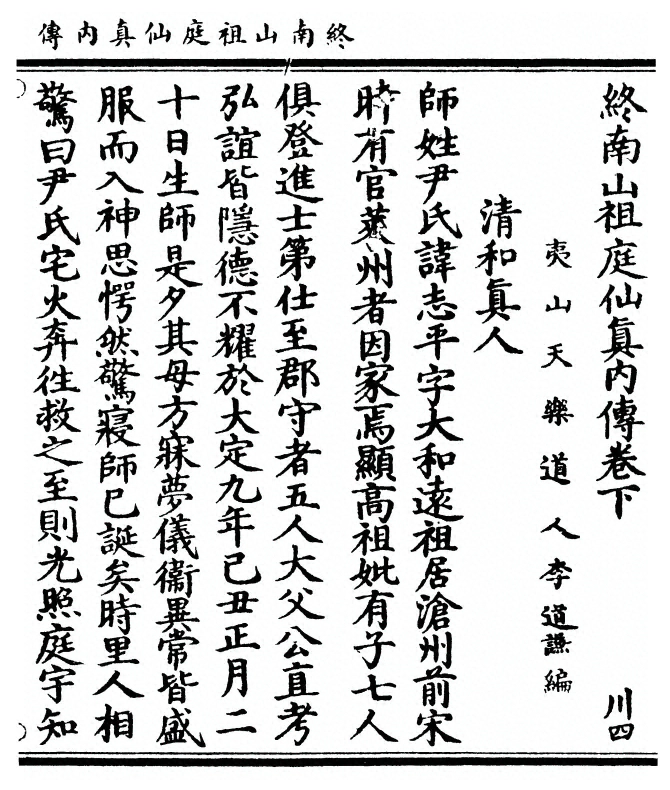 終南山祖庭仙真內傳
終南山祖庭仙眞內傳卷下
川四
夷山天樂道人李道謙編
清和眞人
師姓尹氏諱志平字大和遠祖居滄州前宋
時有官萊州者因家焉顯高祖妣有子七人
俱登進士第仕至郡守者五人大父公直考
弘誼皆隱德不耀於大定九年己丑正月二
十日生師是夕其母方寐夢儀衞異常皆盛
服而入神思愕然驚寤師已誕矣時里人相
驚曰尹氏宅火奔徃救之至則光照庭宇知